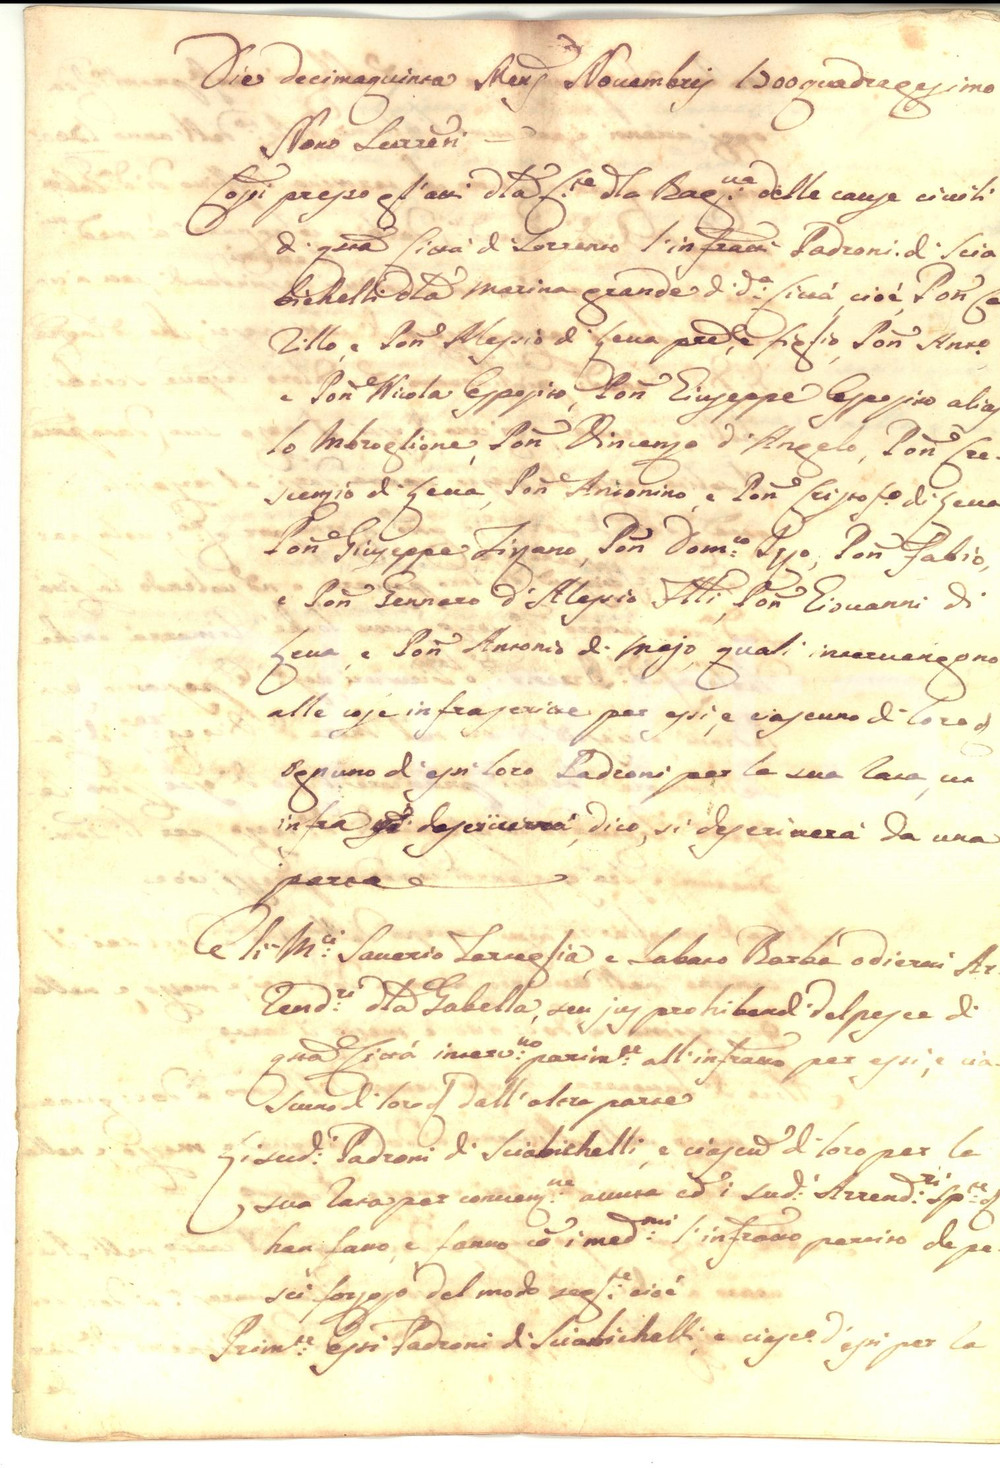 Die decimaquinta Mens Novembris 1700quadragesimo
Nono Surrenti —
Cost. presso gl'atti dla C.te dla Bag.va delle cause civili
di qsta Città di Sorrento l'infratti Padroni di Scia
bichelli dlla marina grande di d.a Città, cioè, Pon Ca
tillo, e Pon Alessio di Leva pred.e figlio, Pon Ant.o
e Pon Nicola Esposito, Pon Giuseppe Esposito alias
lo Mbroglione, Pon Vincenzo d'Angelo, Pon Cre-
scenzio di Leva, Pon Antonino, e Pon Cristof.o di Leva
Pon Giuseppe Fizzano, Pon Dom.co Ppo, Pon Fabio,
e Pon Gennaro d'Alessio Flli, Pon Giovanni di
Leva, e Pon Antonio di Majo quali intervengono
alle cose infrascritte per essi, e ciascuno di loro
ogn'uno di essi loro Padroni per la sua rata, ut
infra descriverrà, dico, si descriverà da una
parte
E li M.ci Saverio Terceglia, e Sabato Barba odierni Ar-
rend.ri dlla Gabella, seu jus prohibendi del pesce di
qsta Città interv.no parim.te all'infratto per essi, e cia-
scuno di loro dall'altra parte
Li sud.i Padroni di Sciabichelli, e ciascun di loro per la
sua rata per convenz.ne avuta co i sud.i Arrend.ri sp.te
han fatto, e fanno co i med.mi l'infratto partito de pe-
sci del modo seg.te cioè
Prim.te Essi Padroni di Sciabichelli, e ciasc.o d'essi per la